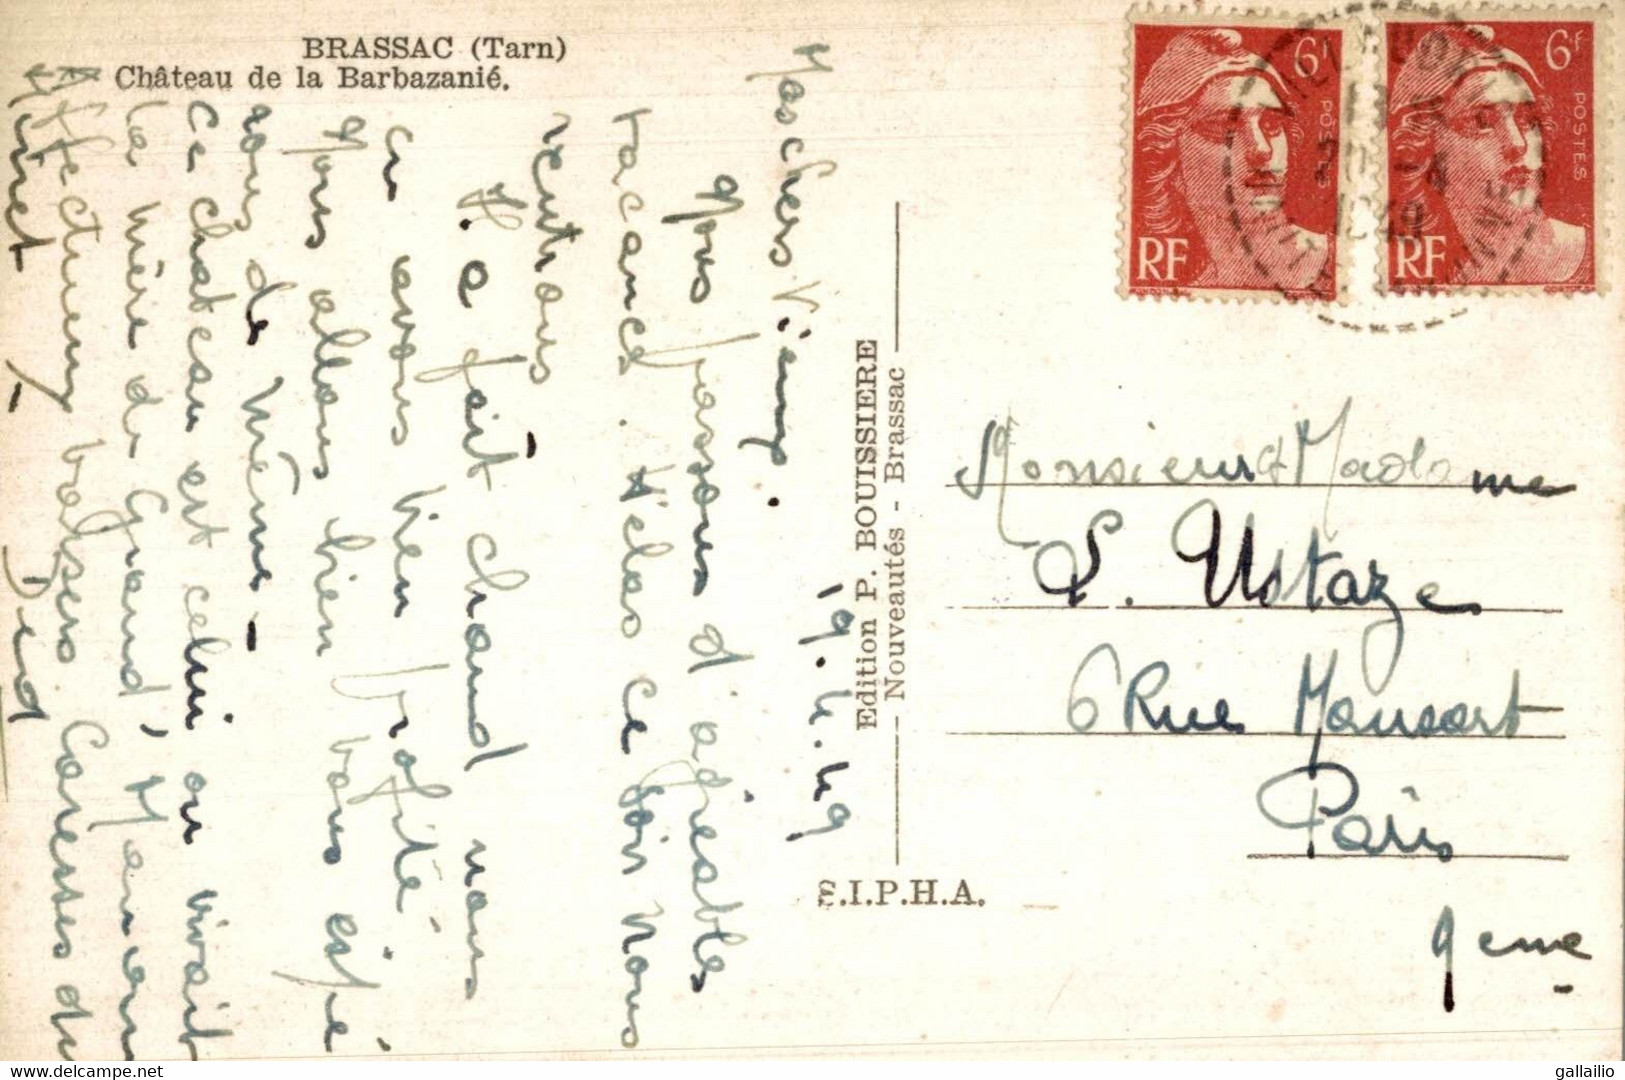 BRASSAC (Tarn)
Château de la Barbazanié.
19.4.49
Mes chers Vieux.
Nous passons d'agréables
vacances. Hélas ce soir nous
rentrons
Il a fait chaud nous
en avons bien profité.
Nous allons bien vous espé
vous de même -
Ce chateau est celui ou vivait
la mère de Grand'Maman
Affectueux baisers. Caresses du
Minet - Déd
Edition P. BOUISSIERE
Nouveautés - Brassac
S.I.P.H.A.
6F
POSTES
RF
6F
POSTES
RF
Monsieur & Madame
L. Ustaze
6 Rue Mansart
Paris
9eme
delcampe.net
gallailio